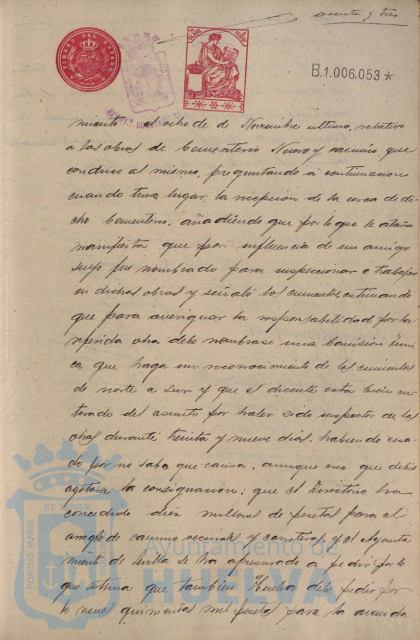 sesenta y tres
B.1.006,053 *
miento el ocho de Noviembre ultimo, relativo
á las obras de Cementerio Nuevo y camino que
conduce al mismo, preguntando á continuacion
cuando tuvo lugar la recepcion de la cerca de di-
cho Cementerio, añadiendo que por lo que le atañe
manifiesta que por influencia de un amigo
suyo fue nombrado para inspeccionar o trabajar
en dichas obras y señaló los cimientos, estimando
que para averiguar la responsabilidad por la
referida obra debe nombrarse una Comision técni-
ca que haga un reconocimiento de los cimientos
de norte a Sur y que el dicente está bien en-
terado del asunto por haber sido inspector de las
obras durante treinta y nueve dias, habiendo cesa-
do por no sabe que causa, aunque cree que debió
agotarse la consignacion; que el Directorio ha
concedido diez millones de pesetas para el
arreglo de caminos vecinales y carreteras y el Ayunta-
miento de Sevilla se ha apresurado a pedir por lo
que estima que tambien Huelva debe pedir por
lo menos quinientas mil pesetas para la avenida
Ayuntamiento de
HUELVA
PORTUS MARIS